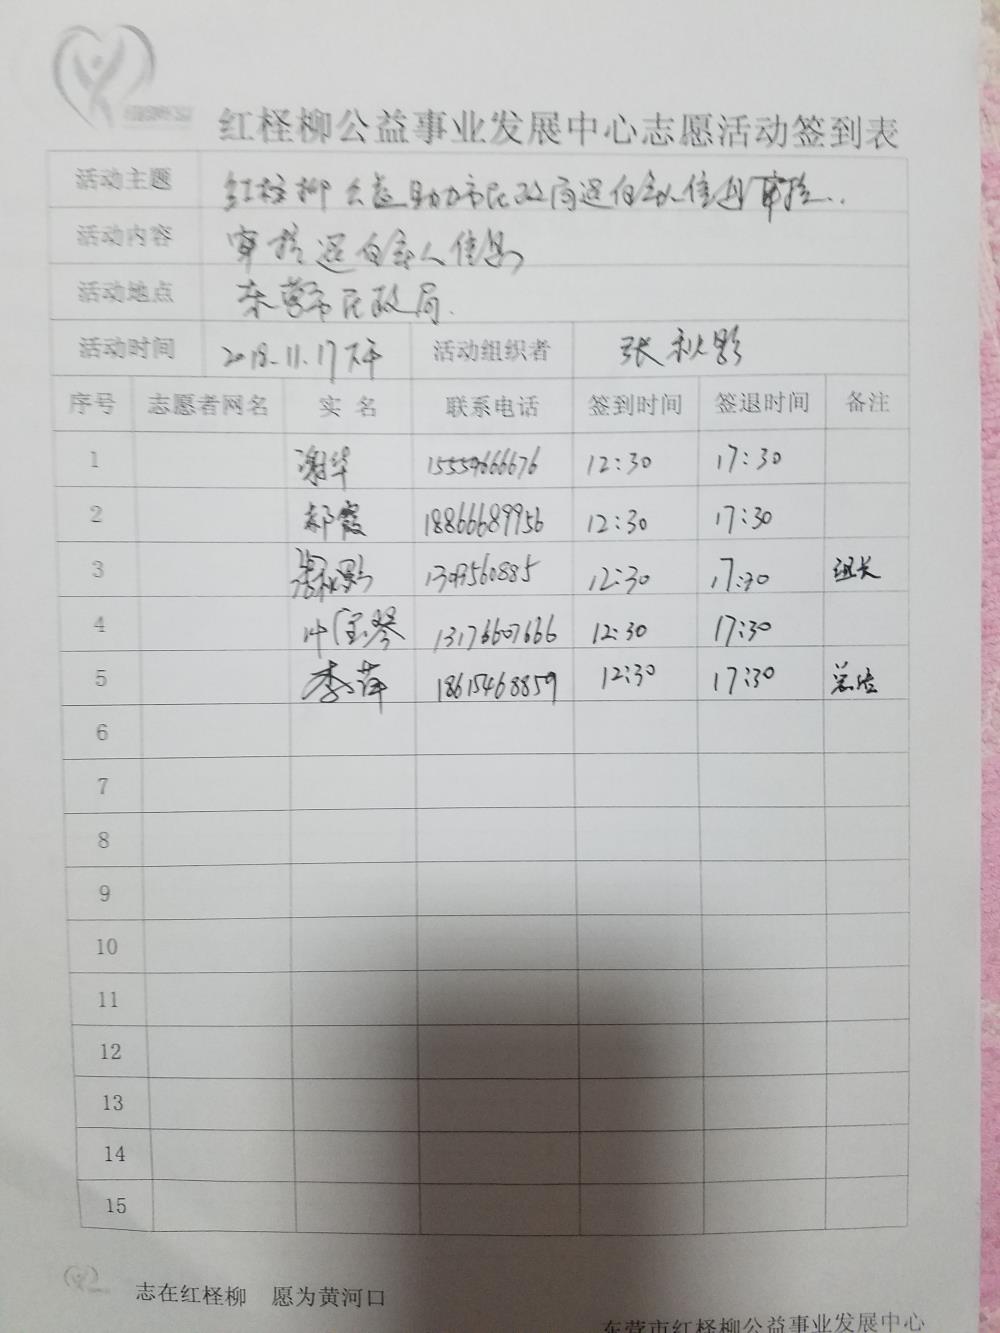 红柽柳公益事业发展中心志愿活动签到表
活动主题 红柽柳公益助力市民政局退役军人信息审核
活动内容 审核退役军人信息
活动地点 东营市民政局.
活动时间 2018.11.17下午 活动组织者 张秋影
序号 志愿者网名 实 名 联系电话 签到时间 签退时间 备注
1 谢华 15559666676 12:30 17:30
2 郝霞 18866689956 12:30 17:30
3 张秋影 12:30 17:30 组长
4 宝琴 13176607666 12:30 17:30
5 李萍 18615468859 12:30 17:30
6
7
8
9
10
11
12
13
14
15
志在红柽柳 愿为黄河口
东营市红柽柳公益事业发展中心